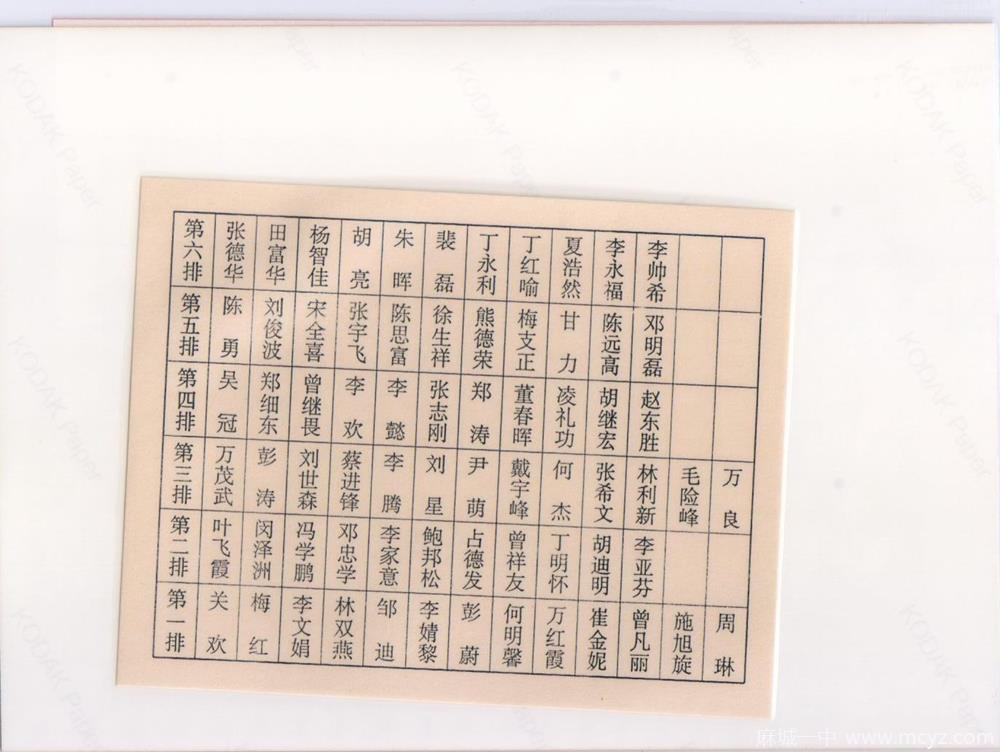 第六排 张德华 田富华 杨智佳 胡亮 朱晖 裴磊 丁永利 丁红喻 夏浩然 李永福 李帅希
第五排 陈勇 刘俊波 宋全喜 张宇飞 陈思富 徐生祥 熊德荣 梅支正 甘力 陈远高 邓明磊
第四排 吴冠 郑细东 曾继畏 李欢 李懿 张志刚 郑涛 董春晖 凌礼功 胡继宏 赵东胜
第三排 万茂武 彭涛 刘世森 蔡进锋 李腾 刘星 尹萌 戴宇峰 何杰 张希文 林利新 毛险峰 万良
第二排 叶飞霞 闵泽洲 冯学鹏 邓忠学 李家意 鲍邦松 占德发 曾祥友 丁明怀 胡迪明 李亚芬
第一排 关欢 梅红 李文娟 林双燕 邹迪 李婧黎 彭蔚 何明馨 万红霞 崔金妮 曾凡丽 施旭旋 周琳
KODAK Paper
KODAK Paper
KODAK Paper
KODAK Paper
麻城一中 www.mcyz.com